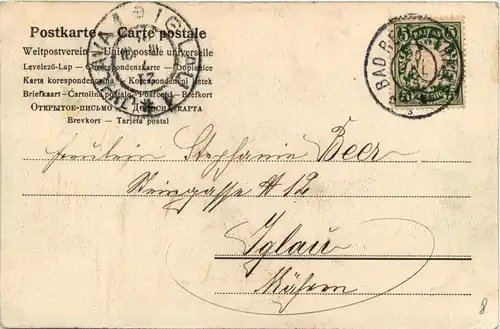 Postkarte — Carte postale
Weltpostverein — Union postale universelle
Levelező-Lap — Correspondenzkarte — Dopisnice
Karta korespondencyjna — Korespondenční lístek
Briefkaart — Cartolina postale — Brefkort
Открытое письмо — Дописна карта
Brevkort — Tarjeta postal
IGLAU
JIHLAVA
BAD
5 5
Fräulein Stephanie Beer
Steingasse # 12
Iglau
Mähren
8